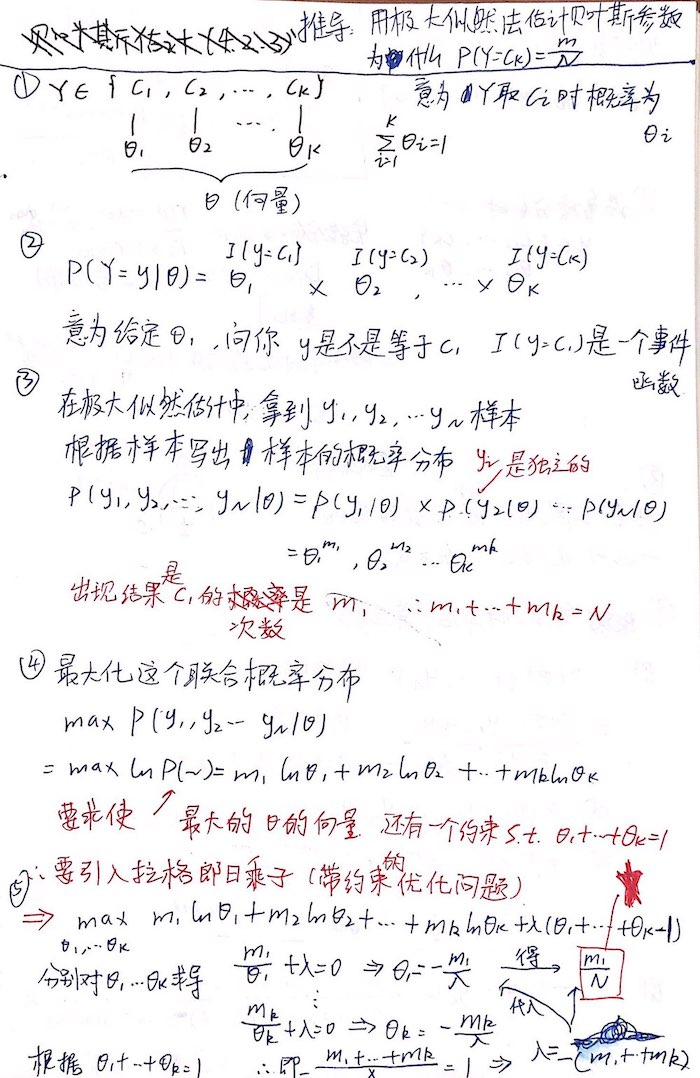 推导: 用极大似然法估计贝叶斯参数
为什么 P(Y=Ck)=m/N
① Y∈{C1, C2, ..., Ck} 意为 Y取Ci时概率为θi
θ1 θ2 ... θk
∑_{i=1}^{K} θi=1
θ (向量)
②
P(Y=y|θ)= θ1^{I(y=C1)} × θ2^{I(y=C2)} , ... × θk^{I(y=Ck)}
意为给定θ1,问你 y是不是等于C1 I(y=C1)是一个事件函数
③
在极大似然估计中,拿到 y1, y2, ... yN 样本
根据样本写出样本的概率分布 yi是独立的
P(y1, y2, ..., yN|θ)=P(y1|θ) × P(y2|θ) ... P(yN|θ)
=θ1^{m1} , θ2^{m2} ... θk^{mk}
出现结果是C1的次数是 m1 ∴ m1+...+mk=N
④ 最大化这个联合概率分布
max P(y1, y2 ... yN|θ)
= max ln P(~)= m1 lnθ1 + m2 lnθ2 + ... + mk lnθk
要求使 最大的θ的向量 还有一个约束 s.t. θ1+...+θk=1
⑤ ∴要引入拉格郎日乘子 (带约束的优化问题)
⇒ max m1 lnθ1 + m2 lnθ2 + ... + mk lnθk + λ(θ1+...+θk-1)
θ1,...θk
分别对θ1...θk求导 m1/θ1 + λ=0 ⇒ θ1=-m1/λ 得→ m1/N
⋮ 代入
mk/θk + λ=0 ⇒ θk=-mk/λ
根据 θ1+...+θk=1 ∴即 -(m1+...+mk)/λ = 1 ⇒ λ=-(m1+...+mk)